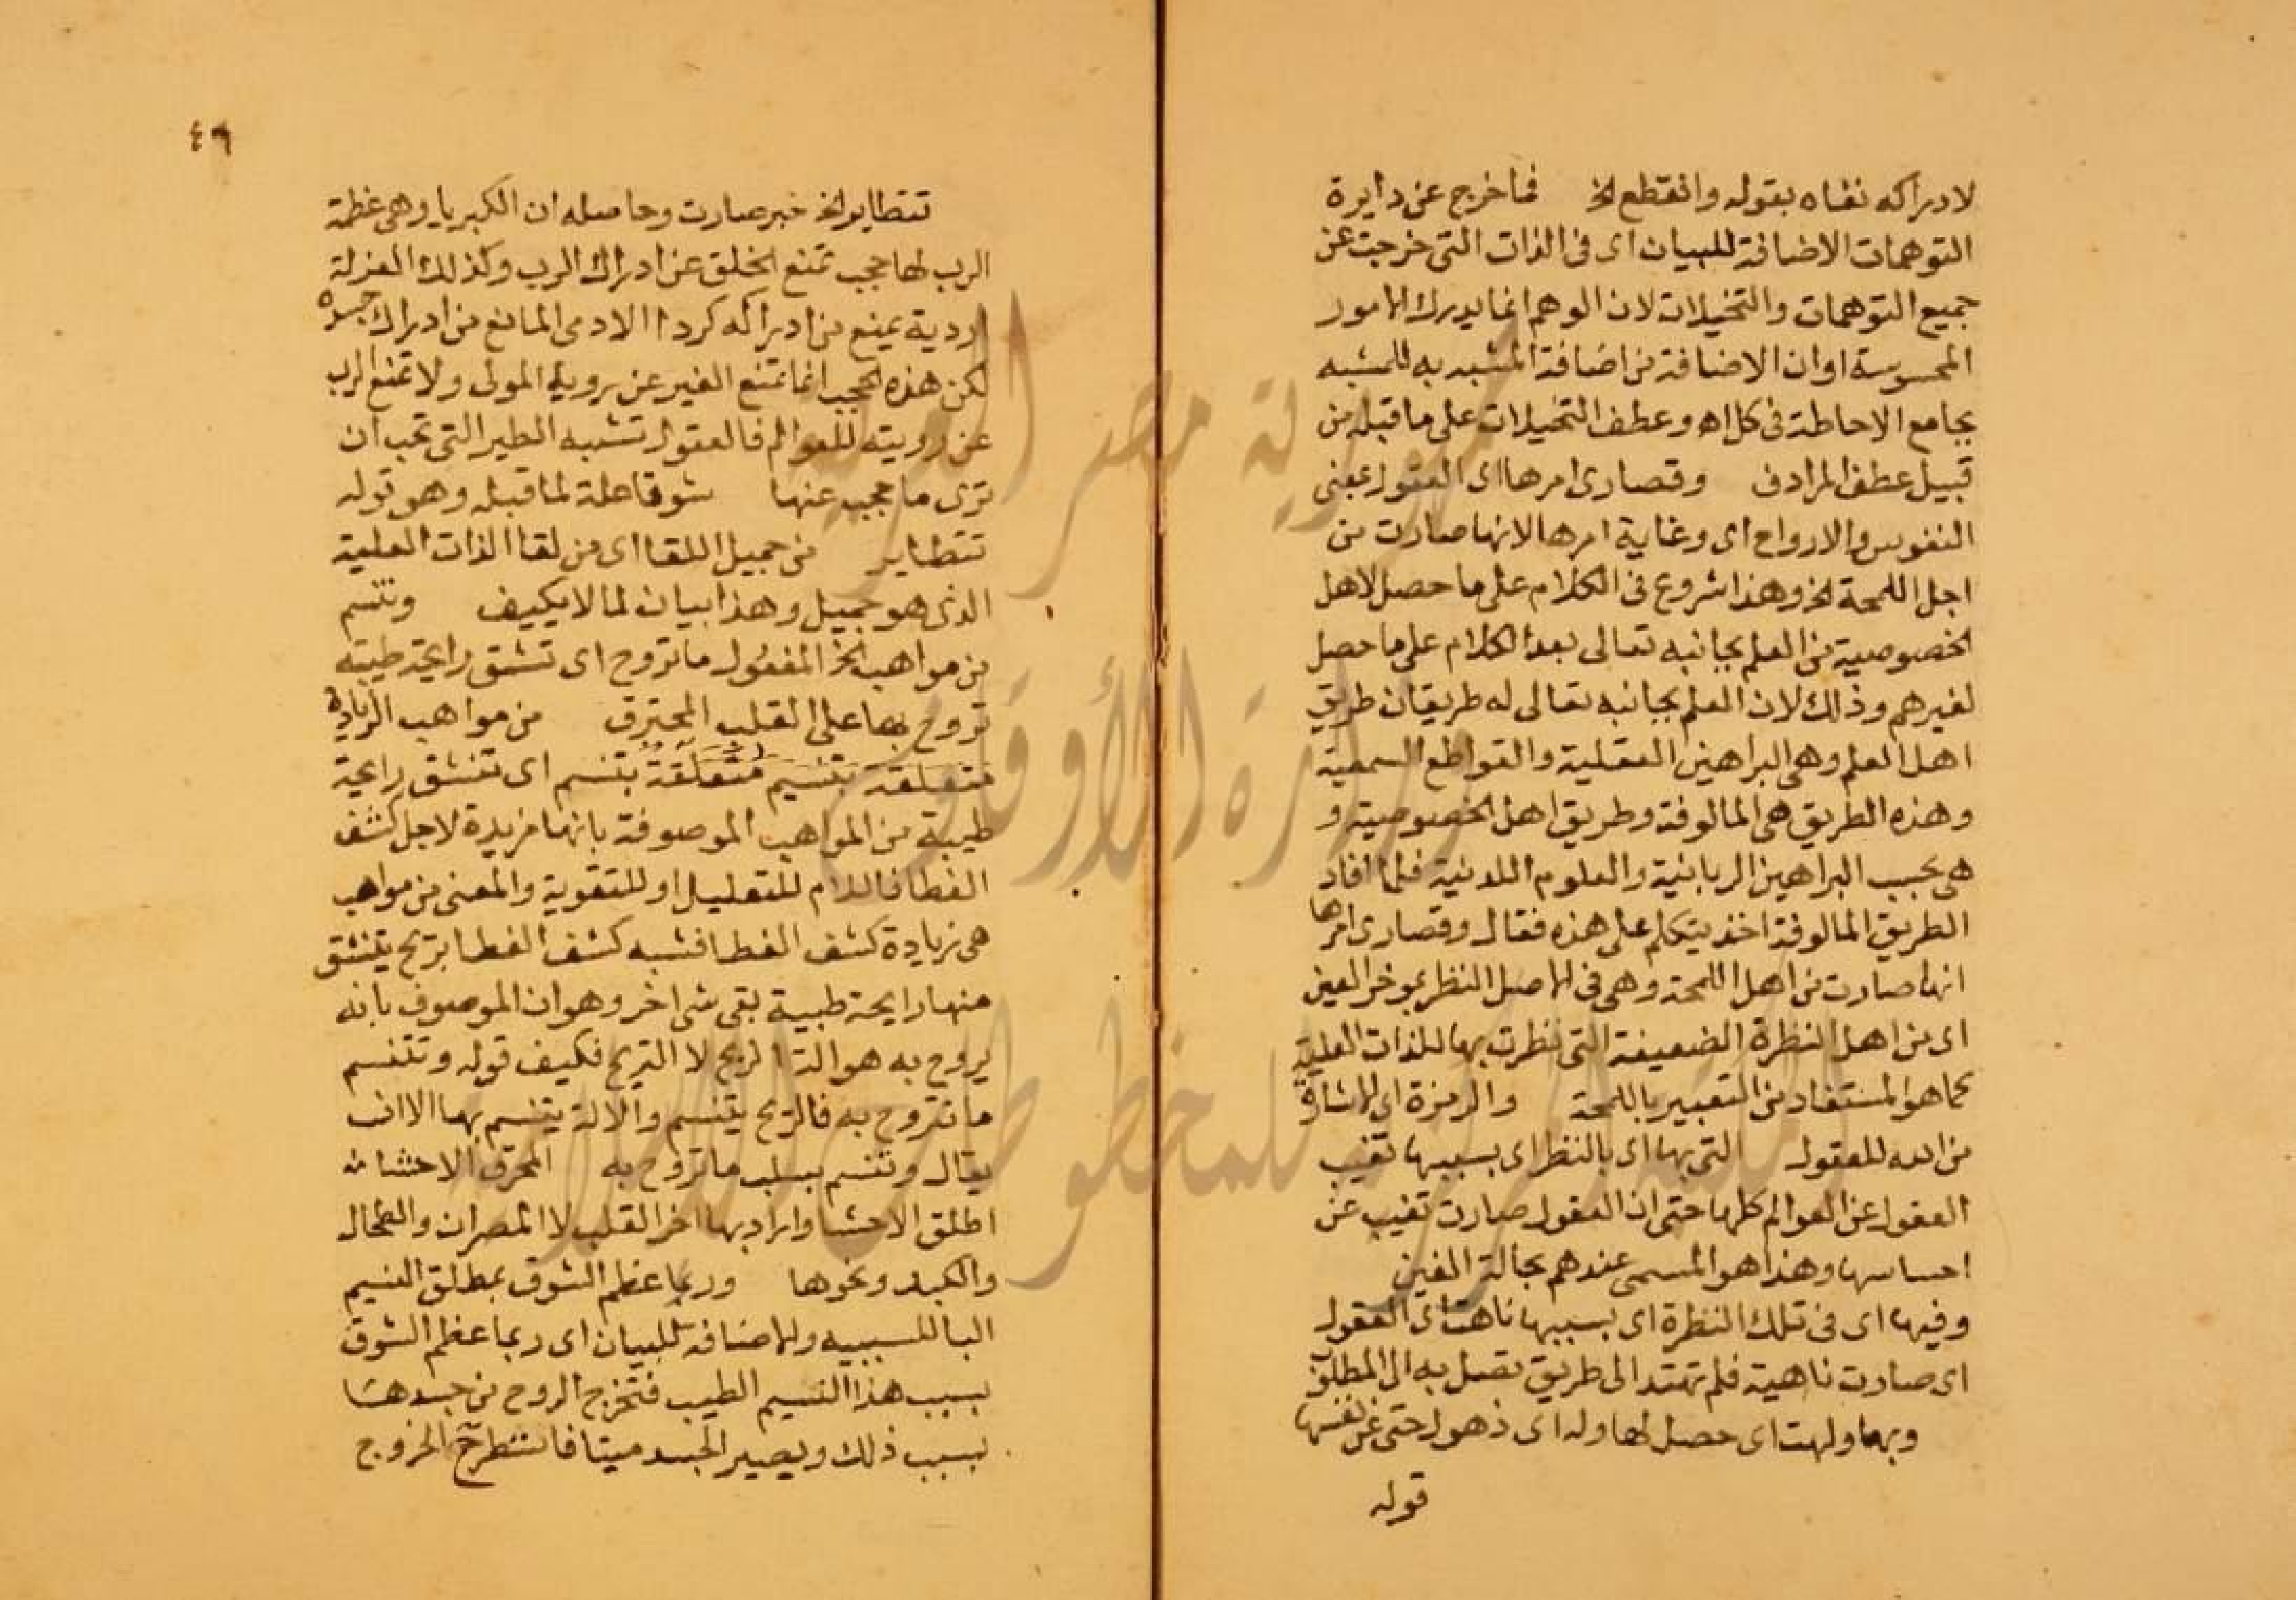 لادراكه نفاه بقوله وانقطع الخ فما خرج عن دايرة
التوهمات الاضافة للبيان اى فى الذات التى خرجت عن
جميع التوهمات والتخيلات لان الوهم انما يدرك الامور
المحسوسة او ان الاضافة من اضافة المشبه به للمشبه
بجامع الاحاطة فى كل اه وعطف التخيلات على ما قبله من
قبيل عطف المرادف وقصارى امرها اى العقول بمعنى
النفوس والارواح اى وغاية امرها لانها صارت من
اجل اللمحة الخ وهذا شروع فى الكلام على ما حصل لاهل
الخصوصية من العلم بجانبه تعالى بعد الكلام على ما حصل
لغيرهم وذلك لان العلم بجانبه تعالى له طريقان طريق
اهل العلم وهى البراهين العقلية والقواطع السمعية
وهذه الطريق هى المالوفة وطريق اهل الخصوصية و
هى بحسب البراهين الربانية والعلوم اللدنية فلما افاد
الطريق المالوفة اخذ يتكلم على هذه فقال وقصارى امرها
انها صارت من اهل اللمحة وهى فى الاصل النظر بموخر العين
اى من اهل النظرة الضعيفة التى نظرت بها للذات العلية
كما هو المستفاد من التعبير باللمحة والرمزة اى الاشارة
من الله للعقول التى بها اى بالنظر اى بسببها تغيب
العقول عن العوالم كلها حتى ان العقول صارت تغيب عن
احساسها وهذا هو المسمى عندهم بحالة الغين
وفيها اى فى تلك النظرة اى بسببها تاهت اى العقول
اى صارت تاهية فلم تهتد الى طريق تصل به الى المطلوب
وبها ولهت اى حصل لها وله اى ذهول حتى عن نفسها
قوله
٤٩
تتطاير الخ خبر صارت وحاصله ان الكبريا وهى عظمة
الرب لها حجب تمنع الخلق عن ادراك الرب وكذلك العزلة
اردية يمنع من ادراكه كردا الادمى المانع من ادراك جسده
لكن هذه الحجب انما تمنع الغير عن روية المولى ولا تمنع الرب
عن رويته للعوالم فالعقول تشبه الطير التى تحب ان
ترى ما حجب عنها شوقا علة لما قبله وهو قوله
تتطاير من جميل اللقا اى من لقا الذات العلية
الذى هو جميل وهذا بيان لما لا يكيف وتنسم
من مواهب الخ المفعول ما تروح اى تنشق رايحة طيبة
تروح بها على القلب المحترق من مواهب الزيادة
متعلقة بتنسيم متعلقة بتنسم اى تنشق رايحة
طيبة من المواهب الموصوفة بانها مزيدة لاجل كشف
الغطا فاللام للتعليل او للتقوية والمعنى من مواهب
هى زيادة كشف الغطا فشبه كشف الغطا بريح يتنشق
منها رايحة طيبة بقى شى اخر وهو ان الموصوف بانه
يروح به هو الة الريح لا الريح فكيف قوله وتتنسم
ما تتروح به فالريح يتنسم والالة يتنسم بها الا ان
يقال وتنسم بسلب ما تروح به المحرق الاحشا من
اطلق الاحشا واراد بها اخر القلب لا المصران والطحال
والكبد ونحوها وربما عظم الشوق بمطلق النسيم
البا للسببيه والاضافة للبيان اى ربما عظم الشوق
بسبب هذا النسيم الطيب فتخرج الروح من جسدها
بسبب ذلك ويصير الجسد ميتا فاستطرح الخروج